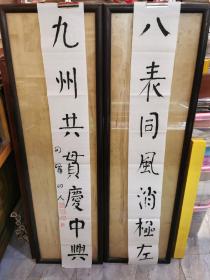 八表同風消極左
九州共貫慶中興